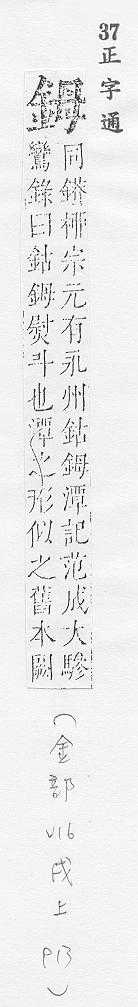 37正字通
鉧
同䥈柳宗元有永州鈷鉧潭記范成大驂
鸞錄曰鈷鉧熨斗也潭之形似之舊本闕
(金部 V16 戌上 P13)